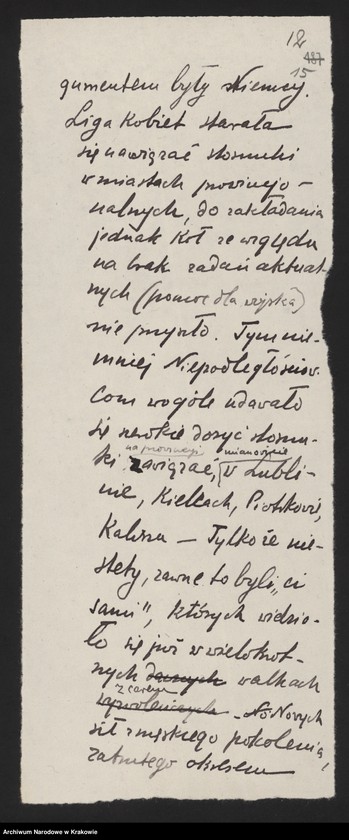 12
487
15
gumentem były Niemcy.
Liga Kobiet starała
się nawiązać stosunki
w miastach prowincjo-
nalnych, do zakładania
jednak kół ze względu
na brak zadań aktual-
nych (pomoc dla wojska)
nie przyszło. Tym nie-
mniej Niepodległościow-
com wogóle udawało
się szerokie dosyć stosun-
na prowincji mianowicie
ki zawiązać, w Lubli-
nie, Kielcach, Piotrkowie,
Kaliszu — Tylko że nie-
stety, zawsze to byli „ci
sami", których widzia-
ło się już w wielokrot-
nych dawnych walkach
z caratem
Nowych
sił z męskiego pokolenia,
zatrutego okresem
Archiwum Narodowe w Krakowie